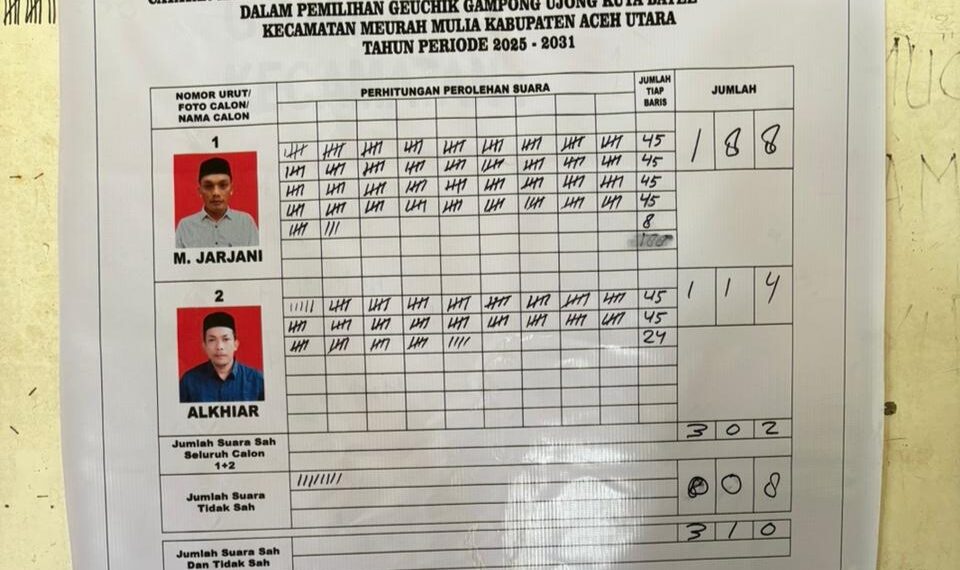 DALAM PEMILIHAN GEUCHIK GAMPONG UJONG KUTA BATEE
KECAMATAN MEURAH MULIA KABUPATEN ACEH UTARA
TAHUN PERIODE 2025 - 2031
NOMOR URUT/
FOTO CALON/
NAMA CALON
PERHITUNGAN PEROLEHAN SUARA
JUMLAH
TIAP
BARIS
JUMLAH
1
M. JARJANI
45
45
45
45
8
188
2
ALKHIAR
45
45
24
114
Jumlah Suara Sah
Seluruh Calon
1+2
302
Jumlah Suara
Tidak Sah
008
Jumlah Suara Sah
Dan Tidak Sah
310